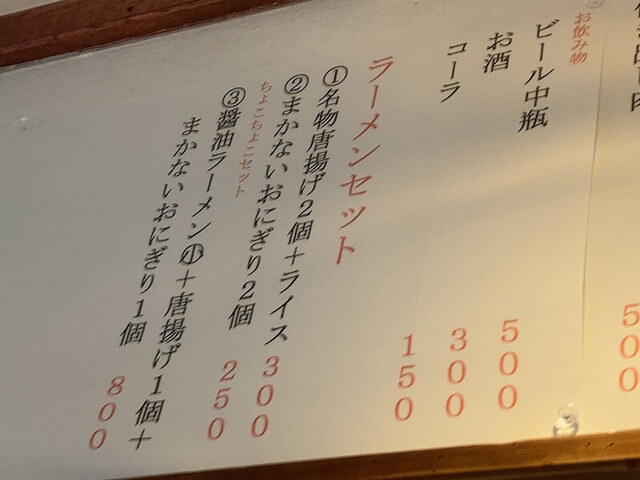 ５００
お飲み物
ビール中瓶 ５００
お酒 ３００
コーラ １５０
ラーメンセット
①名物唐揚げ２個＋ライス ３００
②まかないおにぎり２個 ２５０
ちょこちょこセット
③醤油ラーメン㊉＋唐揚げ１個＋
まかないおにぎり１個 ８００